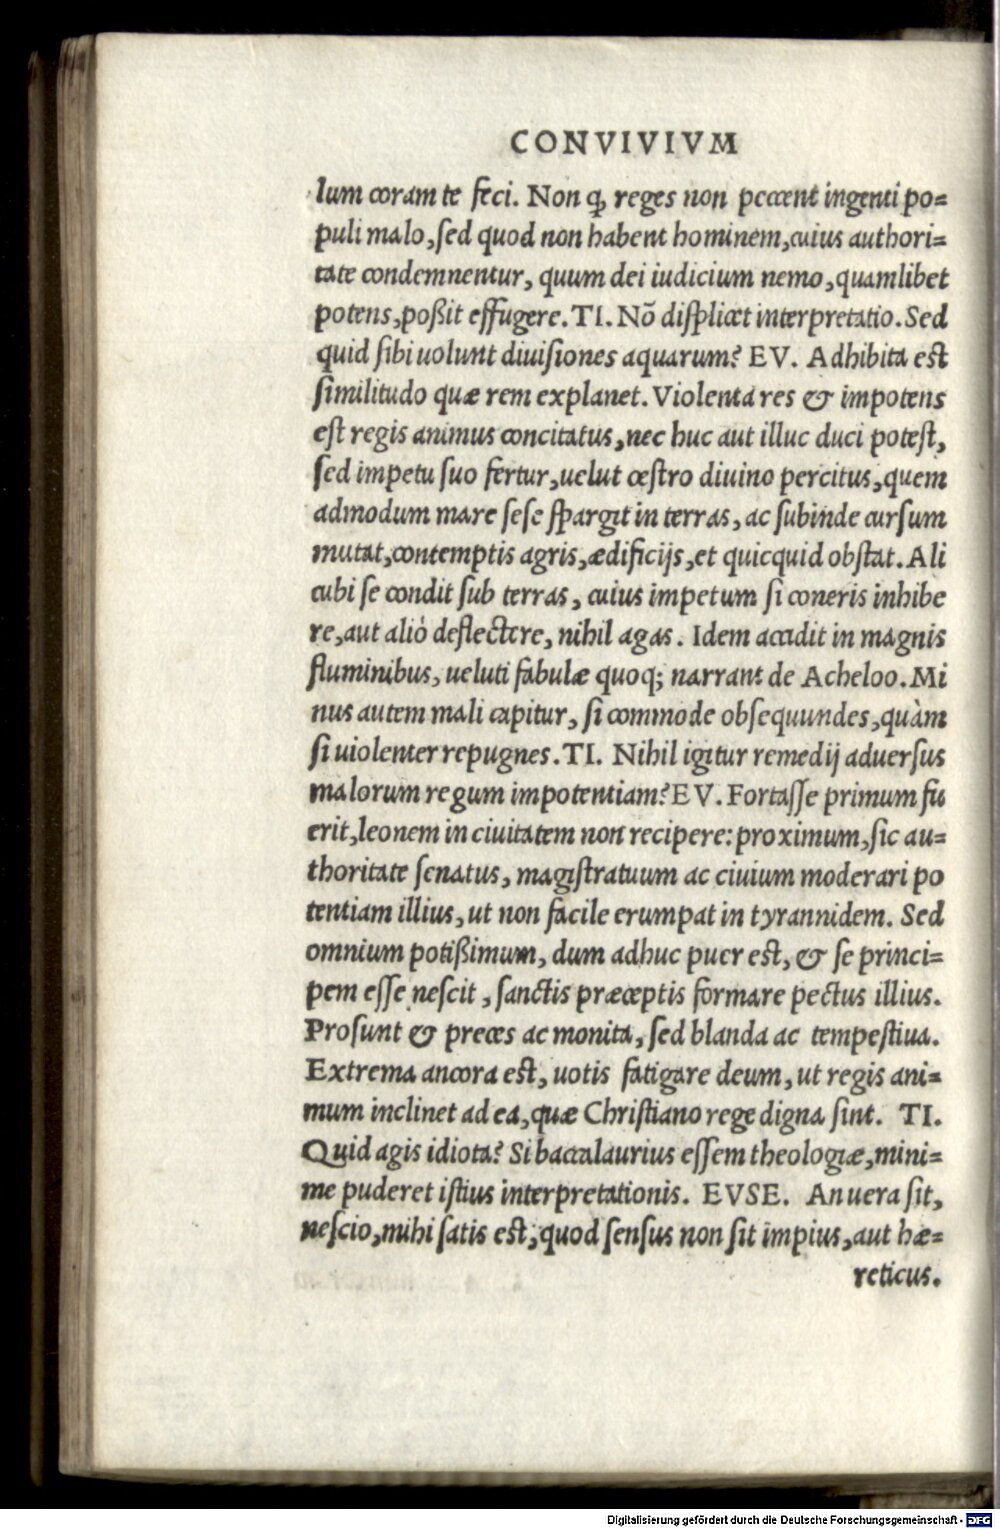 CONVIVIVM
lum coram te feci. Non ꝙ reges non peccent ingenti po=
puli malo, sed quod non habent hominem, cuius authori=
tate condemnentur, quum dei iudicium nemo, quamlibet
potens, poßit effugere. TI. Nõ displicet interpretatio. Sed
quid sibi uolunt diuisiones aquarum? EV. Adhibita est
similitudo quæ rem explanet. Violenta res & impotens
est regis animus concitatus, nec huc aut illuc duci potest,
sed impetu suo fertur, uelut œstro diuino percitus, quem
admodum mare sese spargit in terras, ac subinde cursum
mutat, contemptis agris, ædificijs, et quicquid obstat. Ali
cubi se condit sub terras, cuius impetum si coneris inhibe
re, aut aliò deflectere, nihil agas. Idem accidit in magnis
fluminibus, ueluti fabulæ quoq; narrant de Acheloo. Mi
nus autem mali capitur, si commode obsequundes, quàm
si uiolenter repugnes. TI. Nihil igitur remedij aduersus
malorum regum impotentiam? EV. Fortasse primum fu
erit, leonem in ciuitatem non recipere: proximum, sic au=
thoritate senatus, magistratuum ac ciuium moderari po
tentiam illius, ut non facile erumpat in tyrannidem. Sed
omnium potißimum, dum adhuc puer est, & se princi=
pem esse nescit, sanctis præceptis formare pectus illius.
Prosunt & preces ac monita, sed blanda ac tempestiua.
Extrema ancora est, uotis fatigare deum, ut regis ani=
mum inclinet ad ea, quæ Christiano rege digna sint. TI.
Quid agis idiota? Si baccalaurius essem theologiæ, mini=
me puderet istius interpretationis. EVSE. An uera sit,
nescio, mihi satis est, quod sensus non sit impius, aut hæ=
reticus.
Digitalisierung gefördert durch die Deutsche Forschungsgemeinschaft - DFG